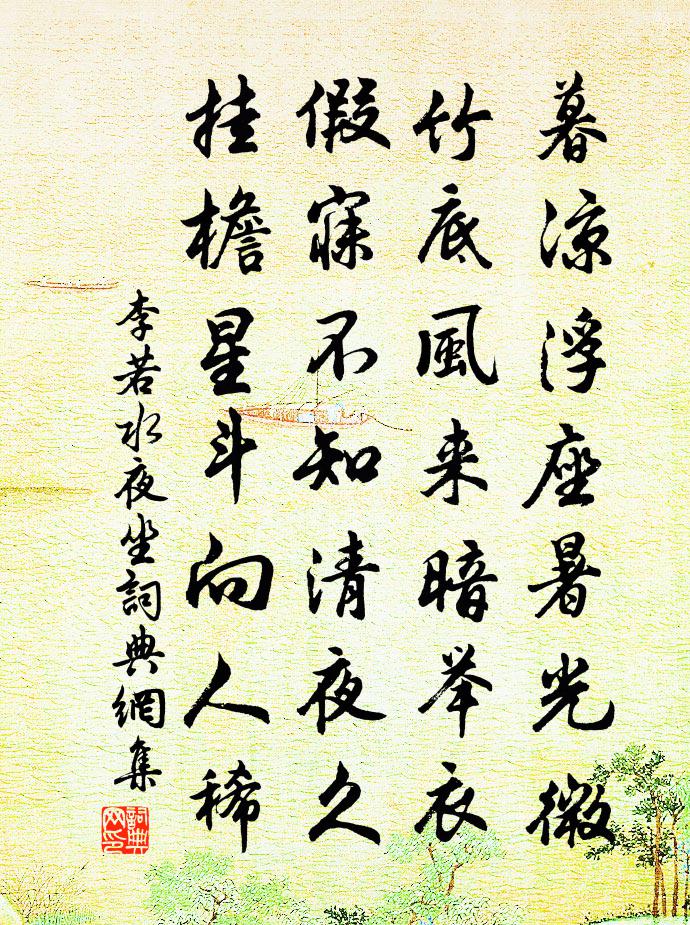 暮凉浮座暑光微
竹底風来暗举衣
假寐不知清夜久
挂檐星斗向人稀
李若水夜坐詞典網集
詞典網印